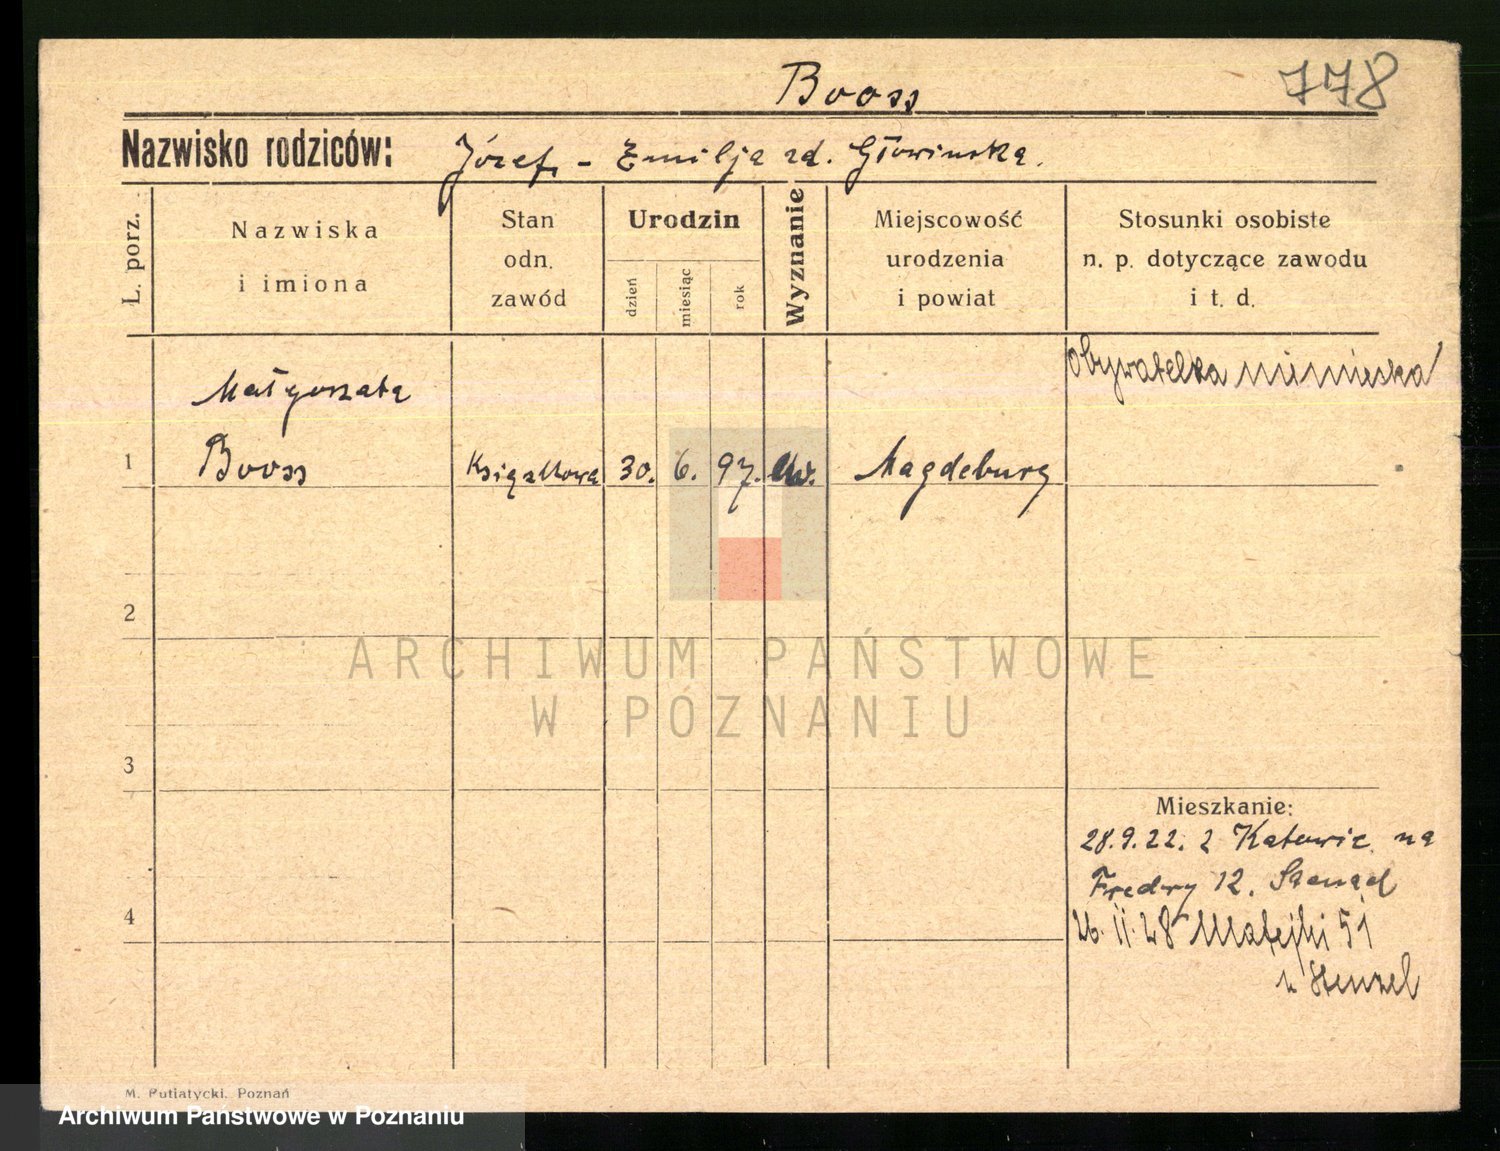 Booss
778
Nazwisko rodziców: Józef, - Emilja zd. Głowinska.
L. porz.
Nazwiska
i imiona
Stan
odn.
zawód
Urodzin
dzień
miesiąc
rok
Wyznanie
Miejscowość
urodzenia
i powiat
Stosunki osobiste
n. p. dotyczące zawodu
i t. d.
Małgorzata
obywatelka niemiecka
1 Booss Książkowa 30. 6. 97. ew. Magdeburg
2
ARCHIWUM PAŃSTWOWE
W POZNANIU
3
Mieszkanie:
28.9.22. z Katowic na
Fredry 12.
4
26.II.28 Matejki 51
u Stenzel
M. Putiatycki, Poznań
Archiwum Państwowe w Poznaniu